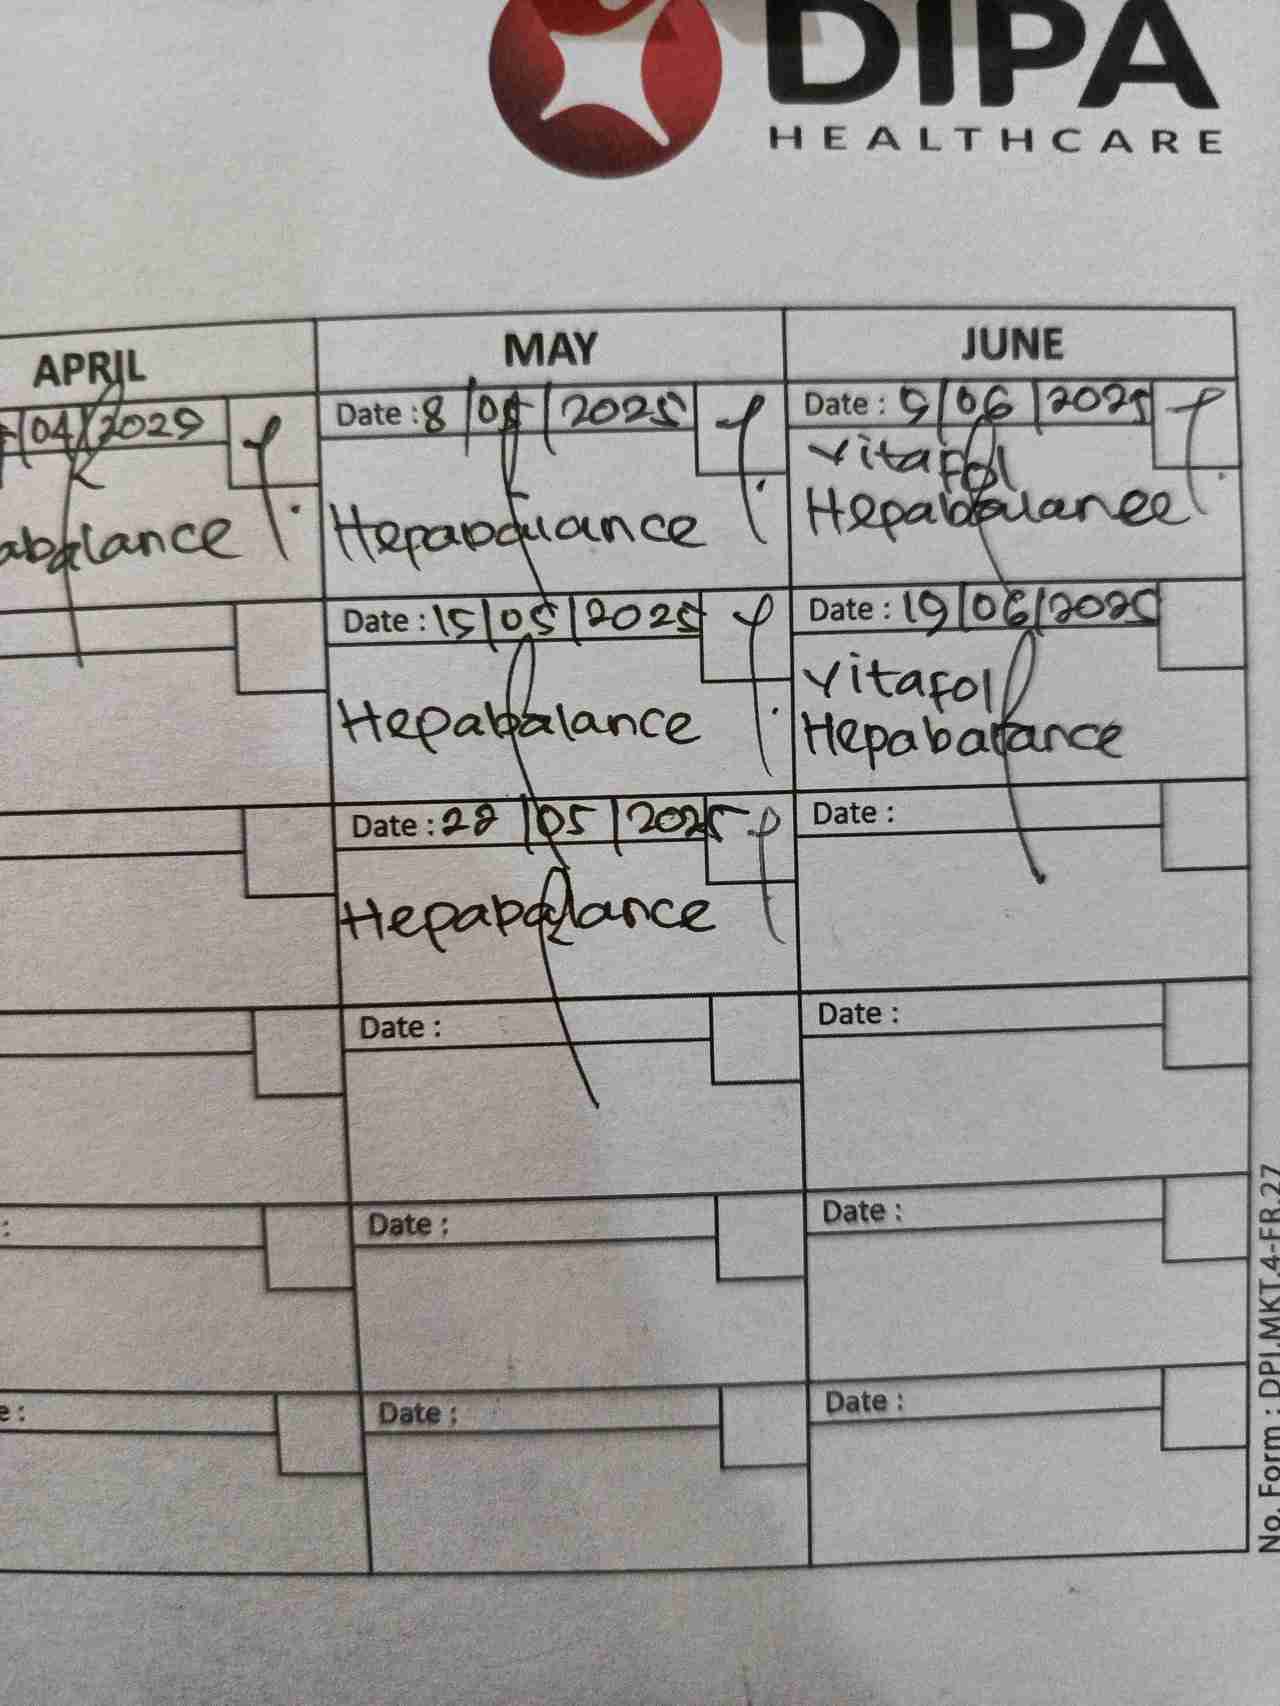 DIPA
HEALTHCARE
APRIL
MAY
JUNE
/04/2029
Date : 8/05/2025
Date : 9/06/2025
abalance
Hepabalance
Vitafol
Hepabalance
Date : 15/05/2025
Date : 19/06/2025
Hepabalance
Vitafol
Hepabalance
Date : 28/05/2025
Date :
Hepabalance
Date :
Date :
:
Date :
Date :
e :
Date :
Date :
No. Form : DPI.MKT.4-FR.27